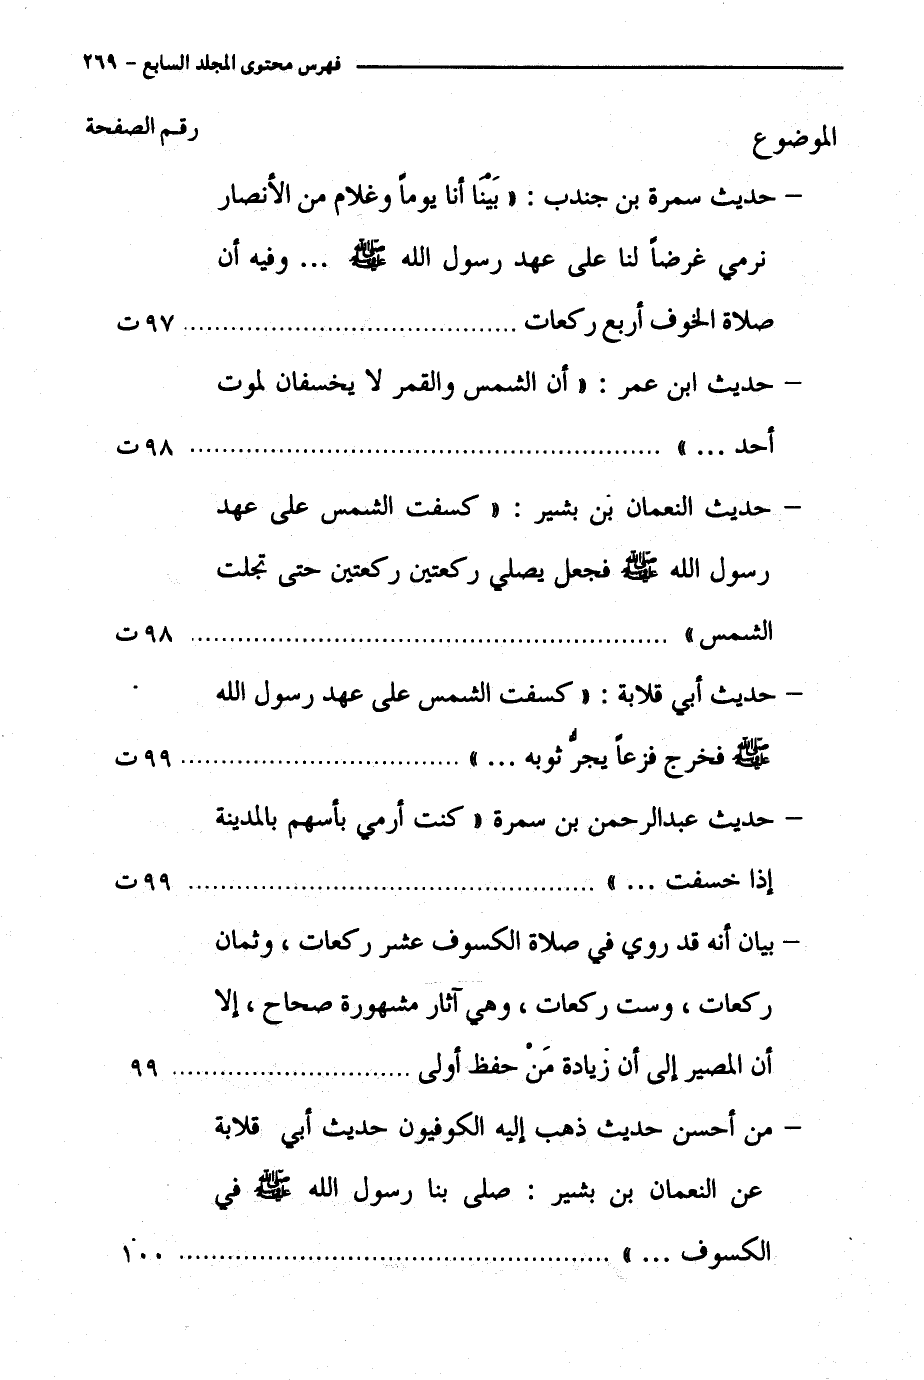 فهرس محتوى المجلد السابع - ٢٦٩
الموضوع رقم الصفحة
- حديث سمرة بن جندب : « بَيْنَا أنا يوماً وغلام من الأنصار
نرمي غرضاً لنا على عهد رسول الله ﷺ ... وفيه أن
صلاة الخوف أربع ركعات ........................................ ٩٧ت
- حديث ابن عمر : « أن الشمس والقمر لا يخسفان لموت
أحد ... » ........................................................... ٩٨ت
- حديث النعمان بن بشير : « كسفت الشمس على عهد
رسول الله ﷺ فجعل يصلي ركعتين ركعتين حتى تجلت
الشمس » ............................................................ ٩٨ت
- حديث أبي قلابة : « كسفت الشمس على عهد رسول الله
ﷺ فخرج فزعاً يجرُّ ثوبه ... » ................................... ٩٩ت
- حديث عبدالرحمن بن سمرة « كنت أرمي بأسهم بالمدينة
إذا خسفت ... » ................................................... ٩٩ت
- بيان أنه قد روي في صلاة الكسوف عشر ركعات ، وثمان
ركعات ، وست ركعات ، وهي آثار مشهورة صحاح ، إلا
أن المصير إلى أن زيادة مَنْ حفظ أولى .............................. ٩٩
- من أحسن حديث ذهب إليه الكوفيون حديث أبي قلابة
عن النعمان بن بشير : صلى بنا رسول الله ﷺ في
الكسوف ... » ...................................................... ١٠٠